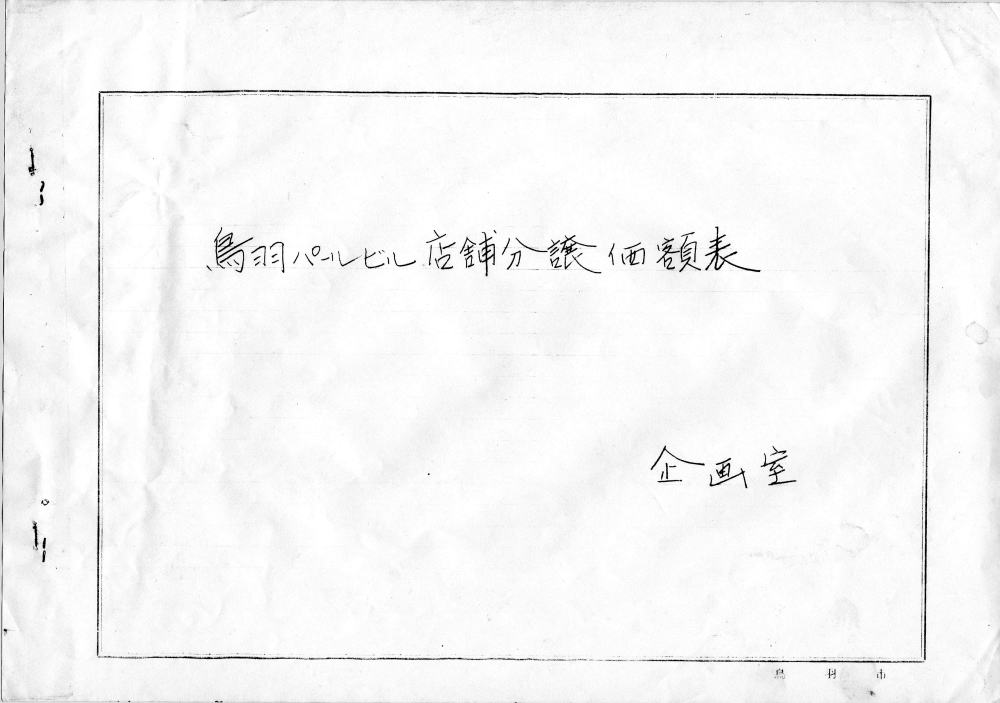 鳥羽パールビル店舗分譲価額表
企画室
鳥羽市